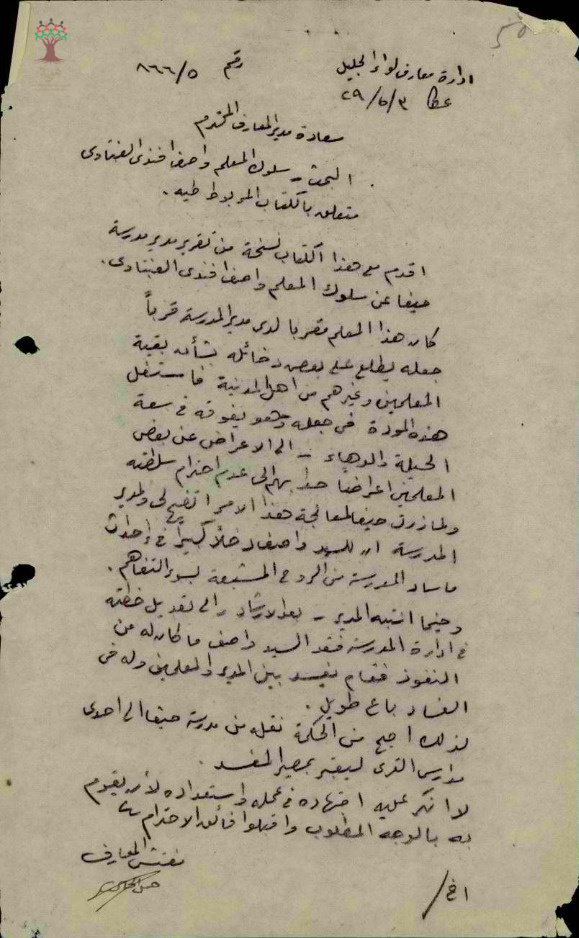 ادارة معارف لواء الجليل
رقم ٨٦٦/٥
عكا ٢٩/٦/٣
سعادة مدير المعارف المحترم
البحث – سلوك المعلم واصف افندي الفتاوى
متعلق بالكتاب المربوط طيه.
اقدم مع هذا الكتاب نسخة من تقرير مدير مدرسة
حيفا عن سلوك المعلم واصف افندي
كان هذا المعلم مقربا لدى مدير المدرسة قرباً
جعله يطلع على بعض دخائله بشأن بقية
المعلمين وغيرهم من اهل المدينة فاستغل
هذه المودة في جعله وهو يفوقه في سعة
الحيلة والدهاء – الى الاعراض عن بعض
المعلمين اعراضاً حدا بهم الى عدم احترام سلطته
ولما زرت حيفا لمعالجة هذا الامر اتضح لي ولمدير
المدرسة ان للسيد واصف دخلاً كبيراً في إحداث
ما ساد المدرسة من الروح المشبعة بسوء التفاهم.
وحينما انتبه المدير – بعد الارشاد – الى تعديل خطته
في ادارة المدرسة فقد السيد واصف ما كان له من
النفوذ فقام يفسد بين المدير والمعلمين وله في
الفساد باع طويل.
لذلك اصبح من الحكمة نقله من مدرسة حيفا الى احدى
مدارس القرى ليعتبر بمصير المفسد.
لا انكر عليه اجتهاده في عمله واستعداده لأن يقوم
به بالوجه المطلوب واقبلوا فائق الاحترام
مفتش المعارف
ا خ/